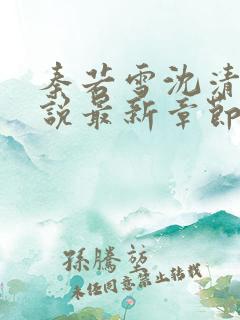 秦若雪沈清
说最新章節
孫騰堃
未经同意禁止转载